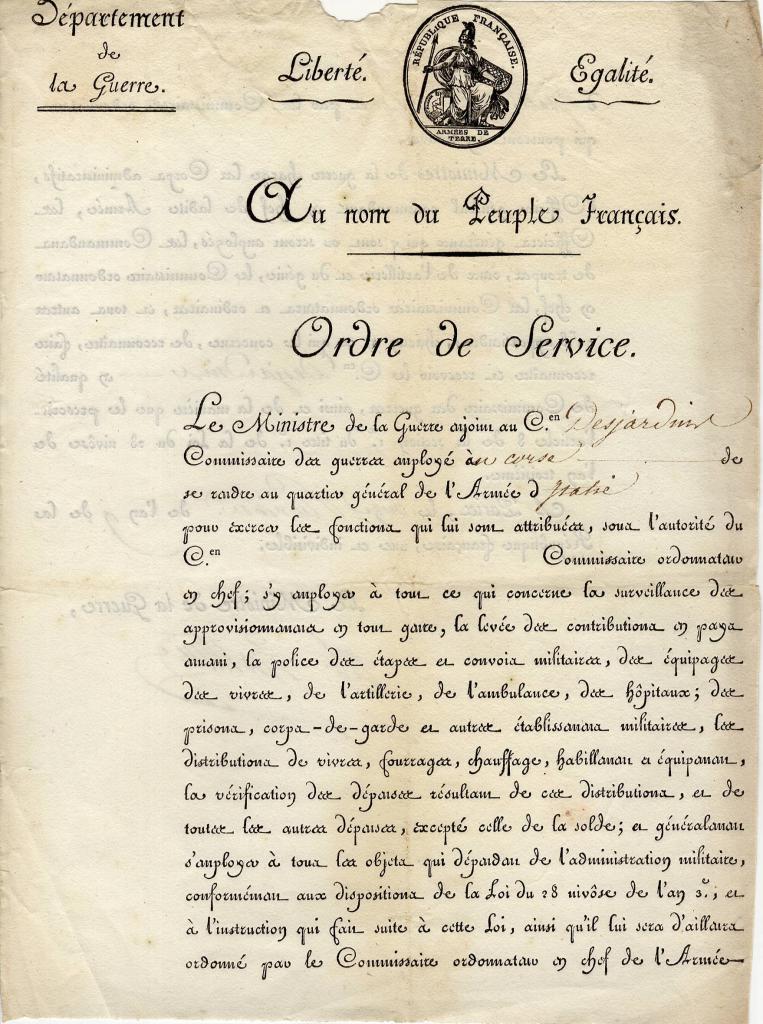 Département
de
la Guerre.
Liberté.
RÉPUBLIQUE FRANÇAISE.
ARMÉES DE
TERRE.
Egalité.
Au nom du Peuple Français.
Ordre de Service.
Le Ministre de la Guerre enjoint au C.en Desjardins
Commissaire des guerres employé en corse de
se rendre au quartier général de l'Armée d'Italie
pour exercer les fonctions qui lui sont attribuées, sous l'autorité du
C.en Commissaire ordonnateur
en chef; s'y employer à tout ce qui concerne la surveillance des
approvisionnemens en tout genre, la levée des contributions en pays
ennemi, la police des étapes et convois militaires, des équipages
des vivres, de l'artillerie, de l'ambulance, des hôpitaux; des
prisons, corps-de-garde et autres établissemens militaires, les
distributions de vivres, fourrages, chauffage, habillement et équipement,
la vérification des dépenses résultant de ces distributions, et de
toutes les autres dépenses, excepté celle de la solde; et généralement
s'employer à tous les objets qui dépendent de l'administration militaire,
conformément aux dispositions de la Loi du 28 nivôse de l'an 3.e; et
à l'instruction qui fait suite à cette Loi, ainsi qu'il lui sera d'ailleurs
ordonné par le Commissaire ordonnateur en chef de l'Armée